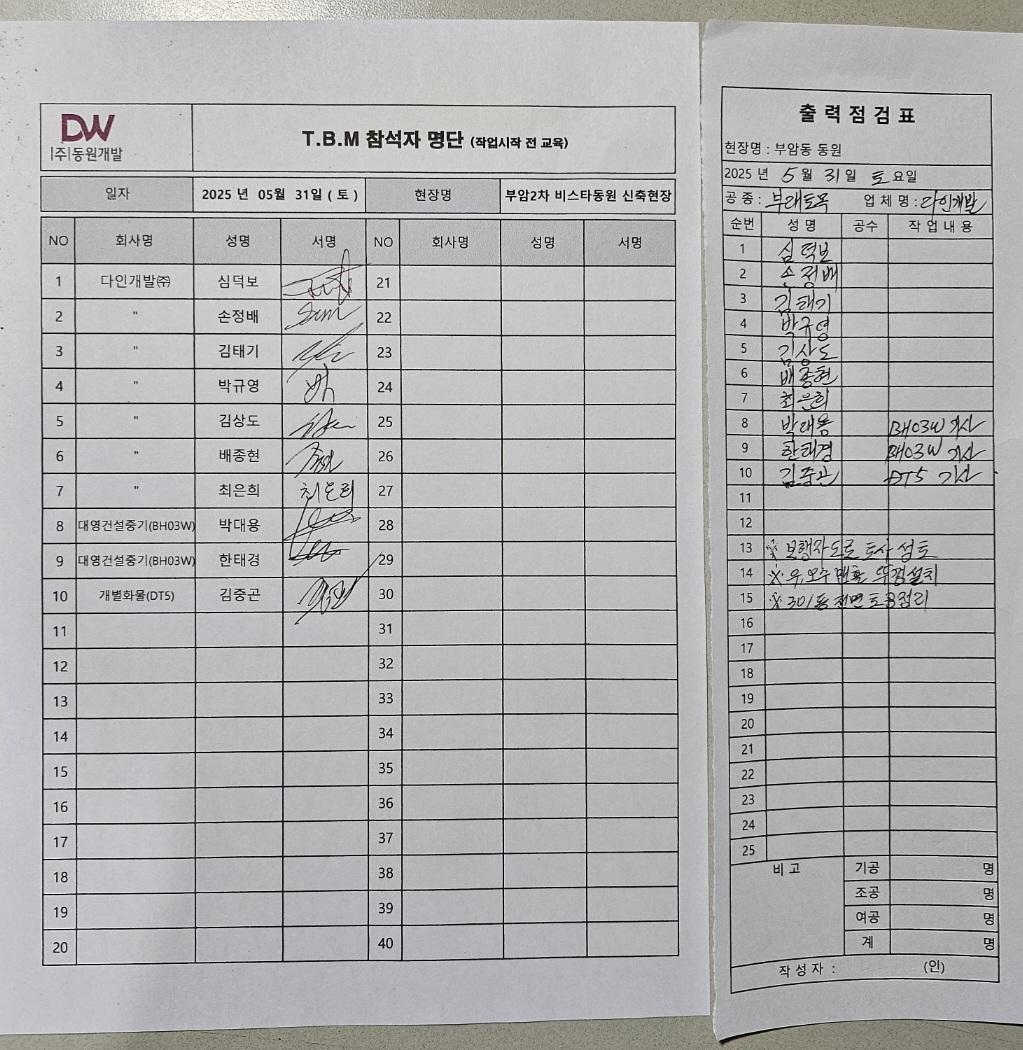 DW
|주|동원개발
T.B.M 참석자 명단 (작업시작 전 교육)
일자 2025 년 05월 31일 ( 토 ) 현장명 부암2차 비스타동원 신축현장
NO 회사명 성명 서명 NO 회사명 성명 서명
1 다인개발㈜ 심덕보 21
2 " 손정배 22
3 " 김태기 23
4 " 박규영 24
5 " 김상도 25
6 " 배종현 26
7 " 최은희 최은희 27
8 대영건설중기(BH03W) 박대용 28
9 대영건설중기(BH03W) 한태경 29
10 개별화물(DT5) 김중곤 30
11 31
12 32
13 33
14 34
15 35
16 36
17 37
18 38
19 39
20 40
출력점검표
현장명 : 부암동 동원
2025 년 5 월 31 일 토 요일
공 종 : 부대토목 업 체 명 : 다인개발
순번 성 명 공수 작 업 내 용
1 심덕보
2 손정배
3 김태기
4 박규영
5 김상도
6 배종현
7 최은희
8 박대용 BH03W 기사
9 한태경 BH03W 기사
10 김중곤 DT5 기사
11
12
13 ※ 보행자도로 토사 성토
14 ※ 우,오수 맨홀 뚜껑설치
15 ※ 301동 전면 토공정리
16
17
18
19
20
21
22
23
24
25
비 고 기공 명
조공 명
여공 명
계 명
작 성 자 : (인)